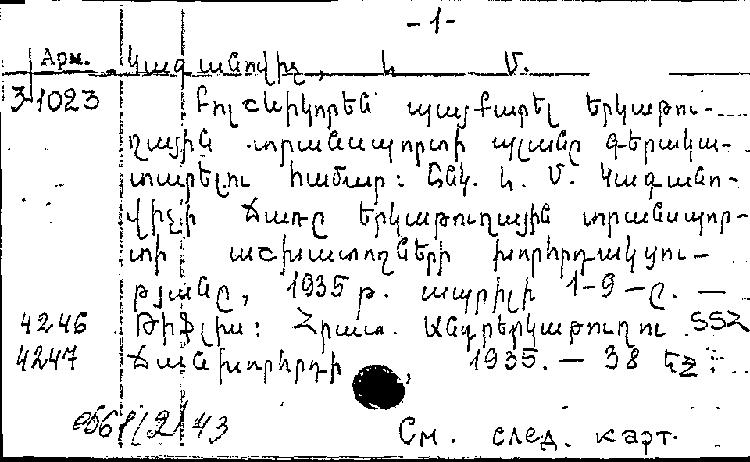 -1-
Арм. Կագանովիչ, Լ Մ.
3-1023 Բոլշևիկորեն պայքարել երկաթու-
ղային տրանսպորտի պլանը գերակա-
տարելու համար: Ընկ. Լ. Մ. Կագանո-
վիչի ճառը երկաթուղային տրանսպոր-
տի աշխատողների խորհրդակցու-
թյանը, 1935 թ. ապրիլի 1-9-ը. —
4246 Թիֆլիս: Հրատ. Անդրերկաթուղու SSՀ
4247 ճանխորհրդի, 1935. — 38 եջ:
См. след. карт.